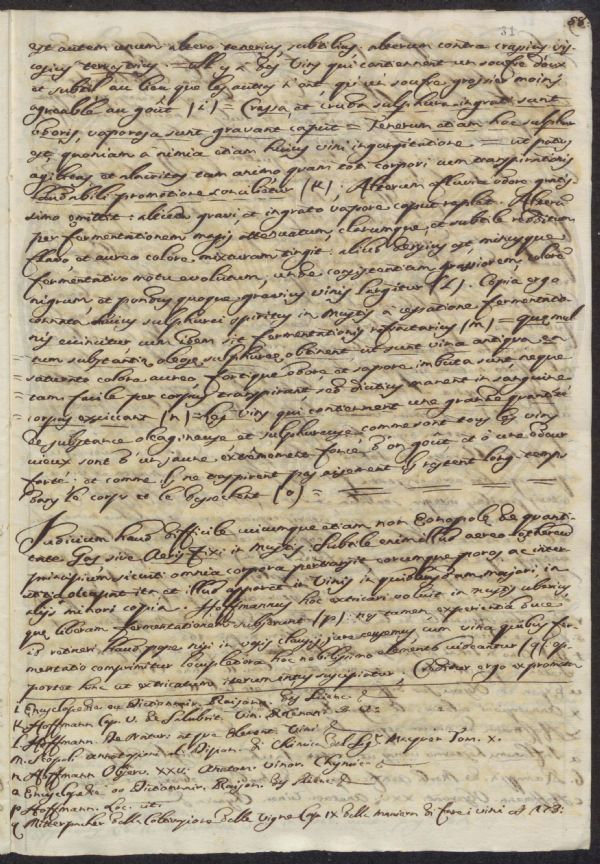 58.
31
est autem unum altero tenerius, subtilius: alterum contra crassius vis-
cosius terrestrius = Il y à des Vins qui contiennent un soufre doux
et subtil au lieu que les autres n'ont, qu'un soufre grossier moins
agreable au goût (i) = Crassa, et cruda sulphura ingrati sunt
odoris, vaporosa sunt gravant caput = Tenerum etiam hoc sulphur
est, quoniam à nimia etiam huius vini ingurgitatione = ut potus
agilitas et alacritas tam animo quam toti corpori cum transpirationis
laudabili promotione concilietur (K), Alterum fluvia odore gratis-
simo emittit: aliud gravi et ingrato vapore caput replet. Alterum
per fermentationem magis attenuatum, clarumque, et subtile redditum
flavo et aureo colore mixturam tingit: aliud tersius est, minusque
fermentativo motu evolutum, unde consistentiam crassiorem, colorem
nigrum, et pondus quoque gravius vinis largitur (L). Copia ergo
connata huius sulphurei spiritus in Mustis a cessatione fermentatio-
nis evincitur cum idem sit fermentationis refractarius (m) = quae mul-
tum substantiae oleosae sulphureae obtinent, ut sunt vina antiqua et
saturato colore aureo, fortique odore et sapore imbuta sunt, neque
tam facile per corpus transpirant sed diutius manent in sanguine
corpus exsiccant (n) = les Vins qui contiennent une grande quantité
de substance oleagineuse, et sulphureuse, comme sont tous les vins
vieux sont d'un jaune extremement foncé, d'on goût et d'une odeur
forte; et comme ils ne traspirent pas aisement ils restent long temps
dans le corps et le dessechent (o) =
Judicium haud difficile cuicumque etiam non Oenopolae de quanti-
tate Gas sive Aeris fixi in Mustis. Subtile enim illud aereo aethereum
principium sicuti omnia corpora pervasit eorumque poros ac inter-
stitia occupat ita et illud apparet in Vinis in quibusdam majori in
aliis minori copia. Hoffmannus hoc extricari voluit in Mustis uberius,
quae liberam fermentationem subierant (p): nos tamen experientia duce
id retineri haud posse nisi in vasis clausis jure censemus, cum vina quibus fer-
mentatio comprimitur locupletiora hoc nobilissimo elemento videantur (q). Op-
portet hinc ut extricatum iterum intus suscipiatur, Creditur ergo ex promptu
i Encyclopedie ou Dictionnaire Raisonn. des Scienc. &
K Hoffmann Cap. V. de Salubrit. Vin. Rhenani
l Hoffmann. De Natur. et prae Rhenan. Vini
m. Scopoli annotazioni al Dizion. di Chimica del Sgr. Macquer Tom. X.
n Hoffmann Observ. XXV. Anatom. Vinor. Chymic.
o Encyclopedie ou Dictionnair. Raison. des Scienc. &
p Hoffmann. Loc. cit.
q Mitterpacher della Coltivazione delle Vigne Cap. IX delle maniere di fare i vini al 173: